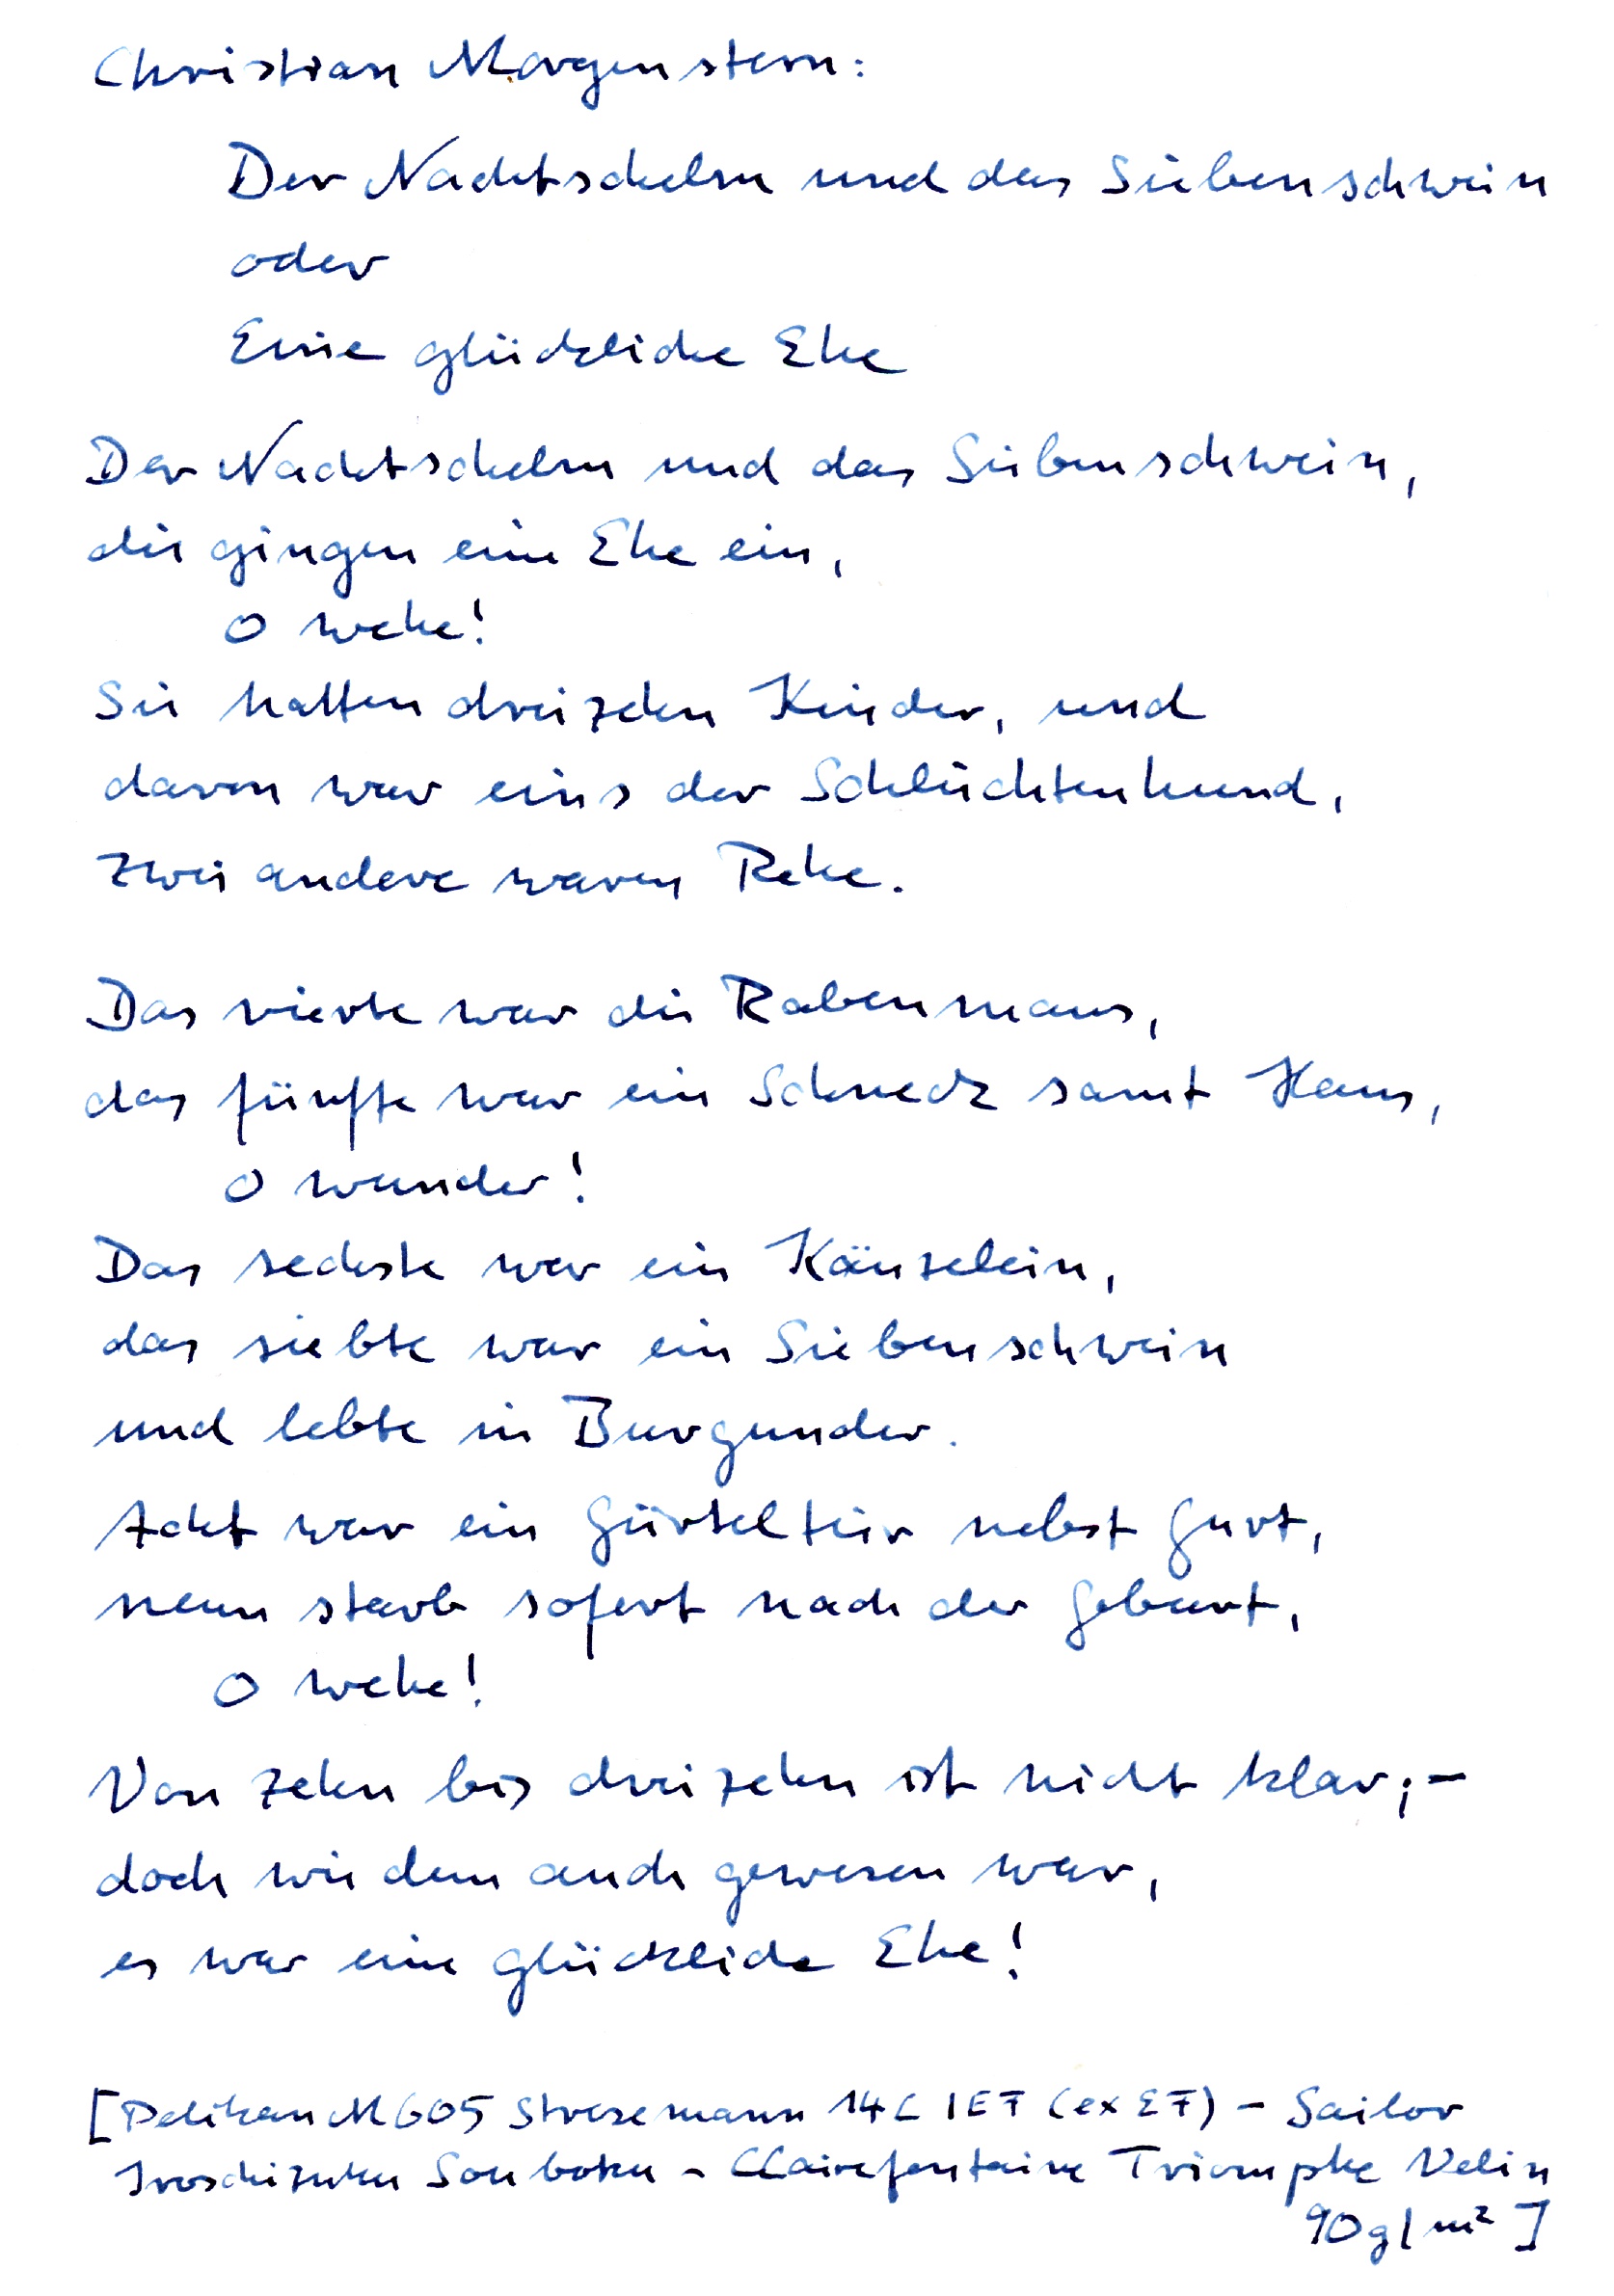 Christian Morgenstern:
Der Nachtschelm und das Siebenschwein
oder
Eine glückliche Ehe
Der Nachtschelm und das Siebenschwein,
die gingen eine Ehe ein,
O wehe!
Sie hatten dreizehn Kinder, und
davon war eins der Schluchtenhund,
zwei andere waren Rehe.
Das vierte war die Rabenmaus,
das fünfte war ein Schneck samt Haus,
O wunder!
Das sechste war ein Käuzelein,
das siebte war ein Siebenschwein
und lebte in Burgunder.
Acht war ein Gürteltier nebst Gurt,
neun starb sofort nach der Geburt,
O wehe!
Von zehn bis dreizehn ist nicht klar; –
doch wie dem auch gewesen war,
es war eine glückliche Ehe!
[Pelikan M605 Stresemann 14C IEF (ex EF) – Sailor
Souboku – Clairefontaine Triomphe Velin
90g/m²]